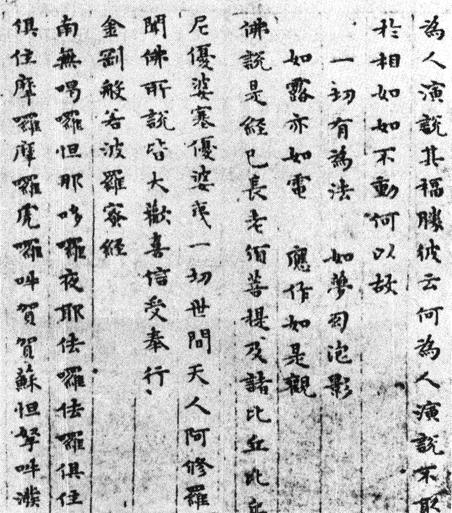 為人演說其福勝彼云何為人演說不取
於相如如不動何以故
一切有為法　如夢幻泡影
如露亦如電　應作如是觀
佛說是經已長老須菩提及諸比丘比丘
尼優婆塞優婆夷一切世間天人阿修羅
聞佛所說皆大歡喜信受奉行
金剛般若波羅蜜經
南無喝囉怛那哆囉夜耶佉囉佉囉俱住
俱住摩囉摩囉虎囉吽賀賀蘇怛拏吽潑